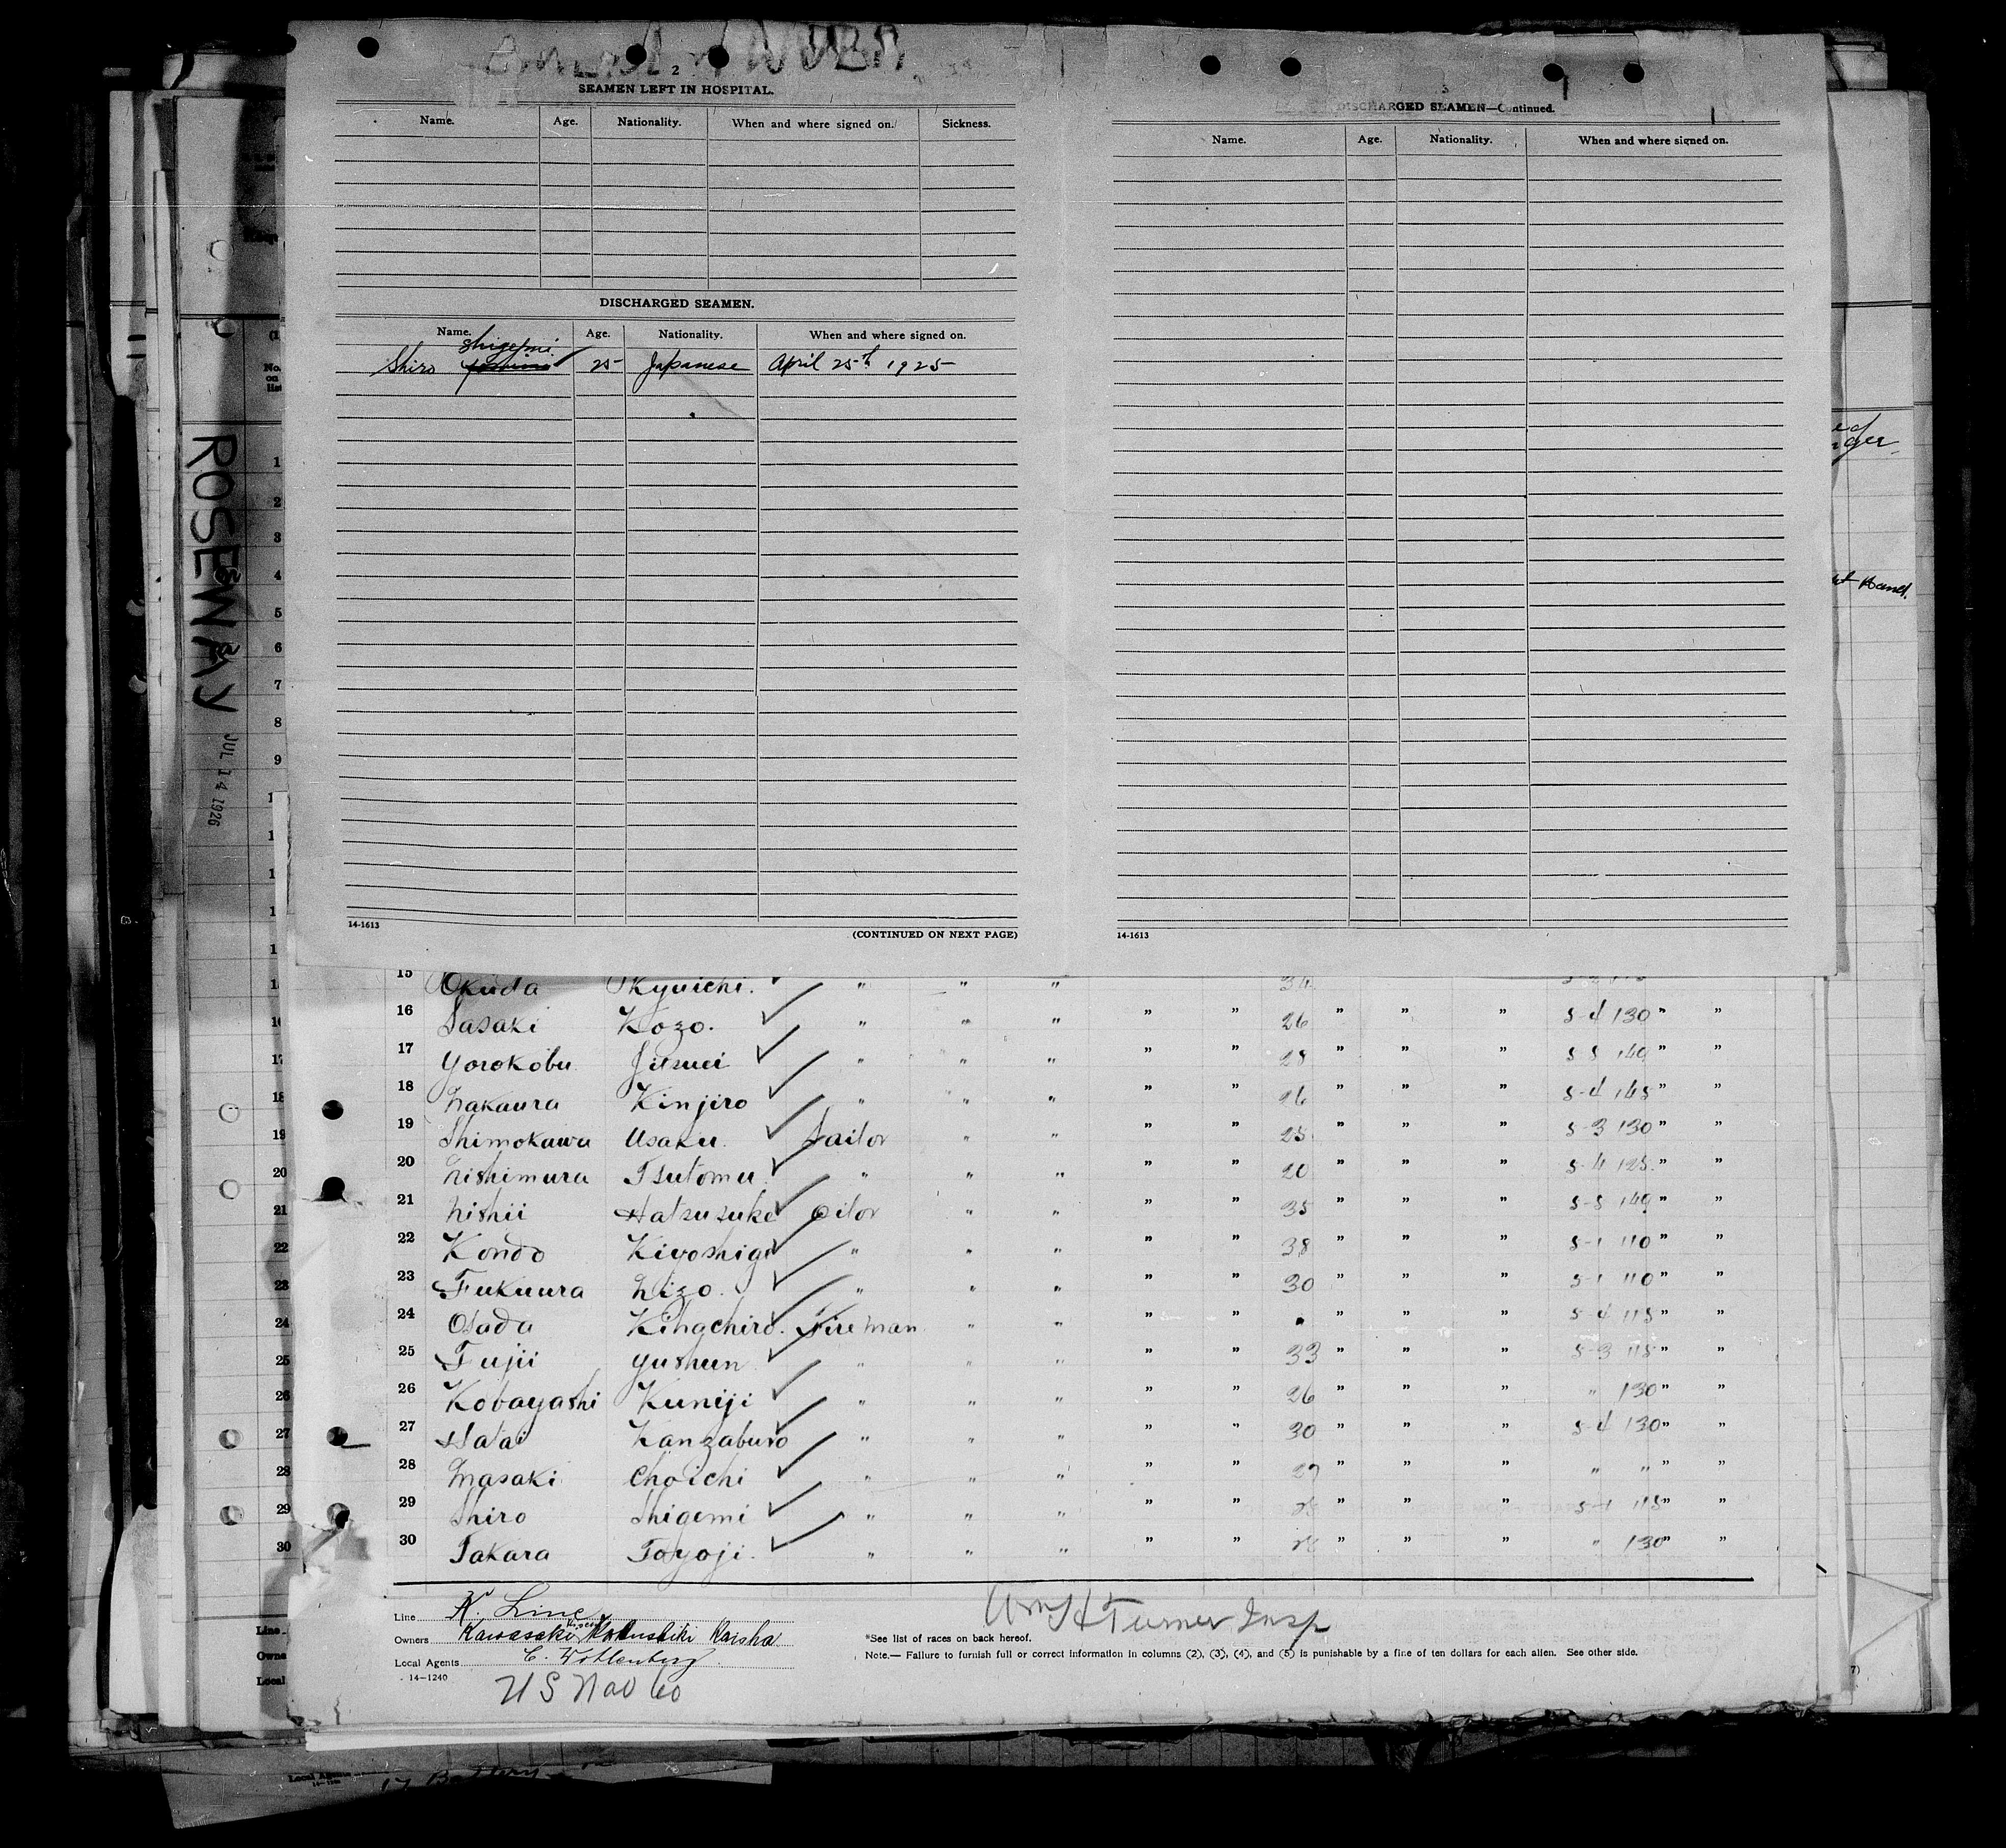 2
SEAMEN LEFT IN HOSPITAL.
Name. Age. Nationality. When and where signed on. Sickness.
DISCHARGED SEAMEN.
Name. Age. Nationality. When and where signed on.
Shigemi
Shiro 25 Japanese April 25th 1925
14-1613
(CONTINUED ON NEXT PAGE)
3
DISCHARGED SEAMEN—Continued.
Name. Age. Nationality. When and where signed on.
14-1613
ROSEWAY
JUL 14 1926
15 Okuda Kyuichi. " " " 34
16 Sasaki Kozo. " " " " " 26 " " " 5-4 130 " "
17 Yorokobu " " " " " 28 " " " 5-5 140 " "
18 Nakaura Kinjiro " " " " " 26 " " " 5-4 145 " "
19 Shimokawa Usaku. Sailor " " " " 25 " " " 5-3 130 " "
20 Nishimura Tsutomu " " " " " 20 " " " 5-4 125 " "
21 Nishii Hatsusuke Oiler " " " " 35 " " " 5-5 140 " "
22 Kondo Kiyoshige " " " " " 38 " " " 5-1 110 " "
23 Fukuura Nizo. " " " " " 30 " " " 5-1 110 " "
24 Osada Kihachiro. Fireman " " " " " " " 5-4 115 " "
25 Fujii Yushun " " " " " 33 " " " 5-3 115 " "
26 Kobayashi Kuniji " " " " " 26 " " " " 130 " "
27 Kanzaburo " " " " " 30 " " " 5-4 130 " "
28 Masaki Choichi " " " " " 27 " " " " " " "
29 Shiro Shigemi " " " " " " " " 5-1 115 " "
30 Takara Toyoji. " " " " " " " " " 130 " "
Line K. Line
Owners Kawasaki Kisen Kabushiki Kaisha
Local Agents
14-1240
Wm H Turner Insp
*See list of races on back hereof.
Note.— Failure to furnish full or correct information in columns (2), (3), (4), and (5) is punishable by a fine of ten dollars for each alien. See other side.